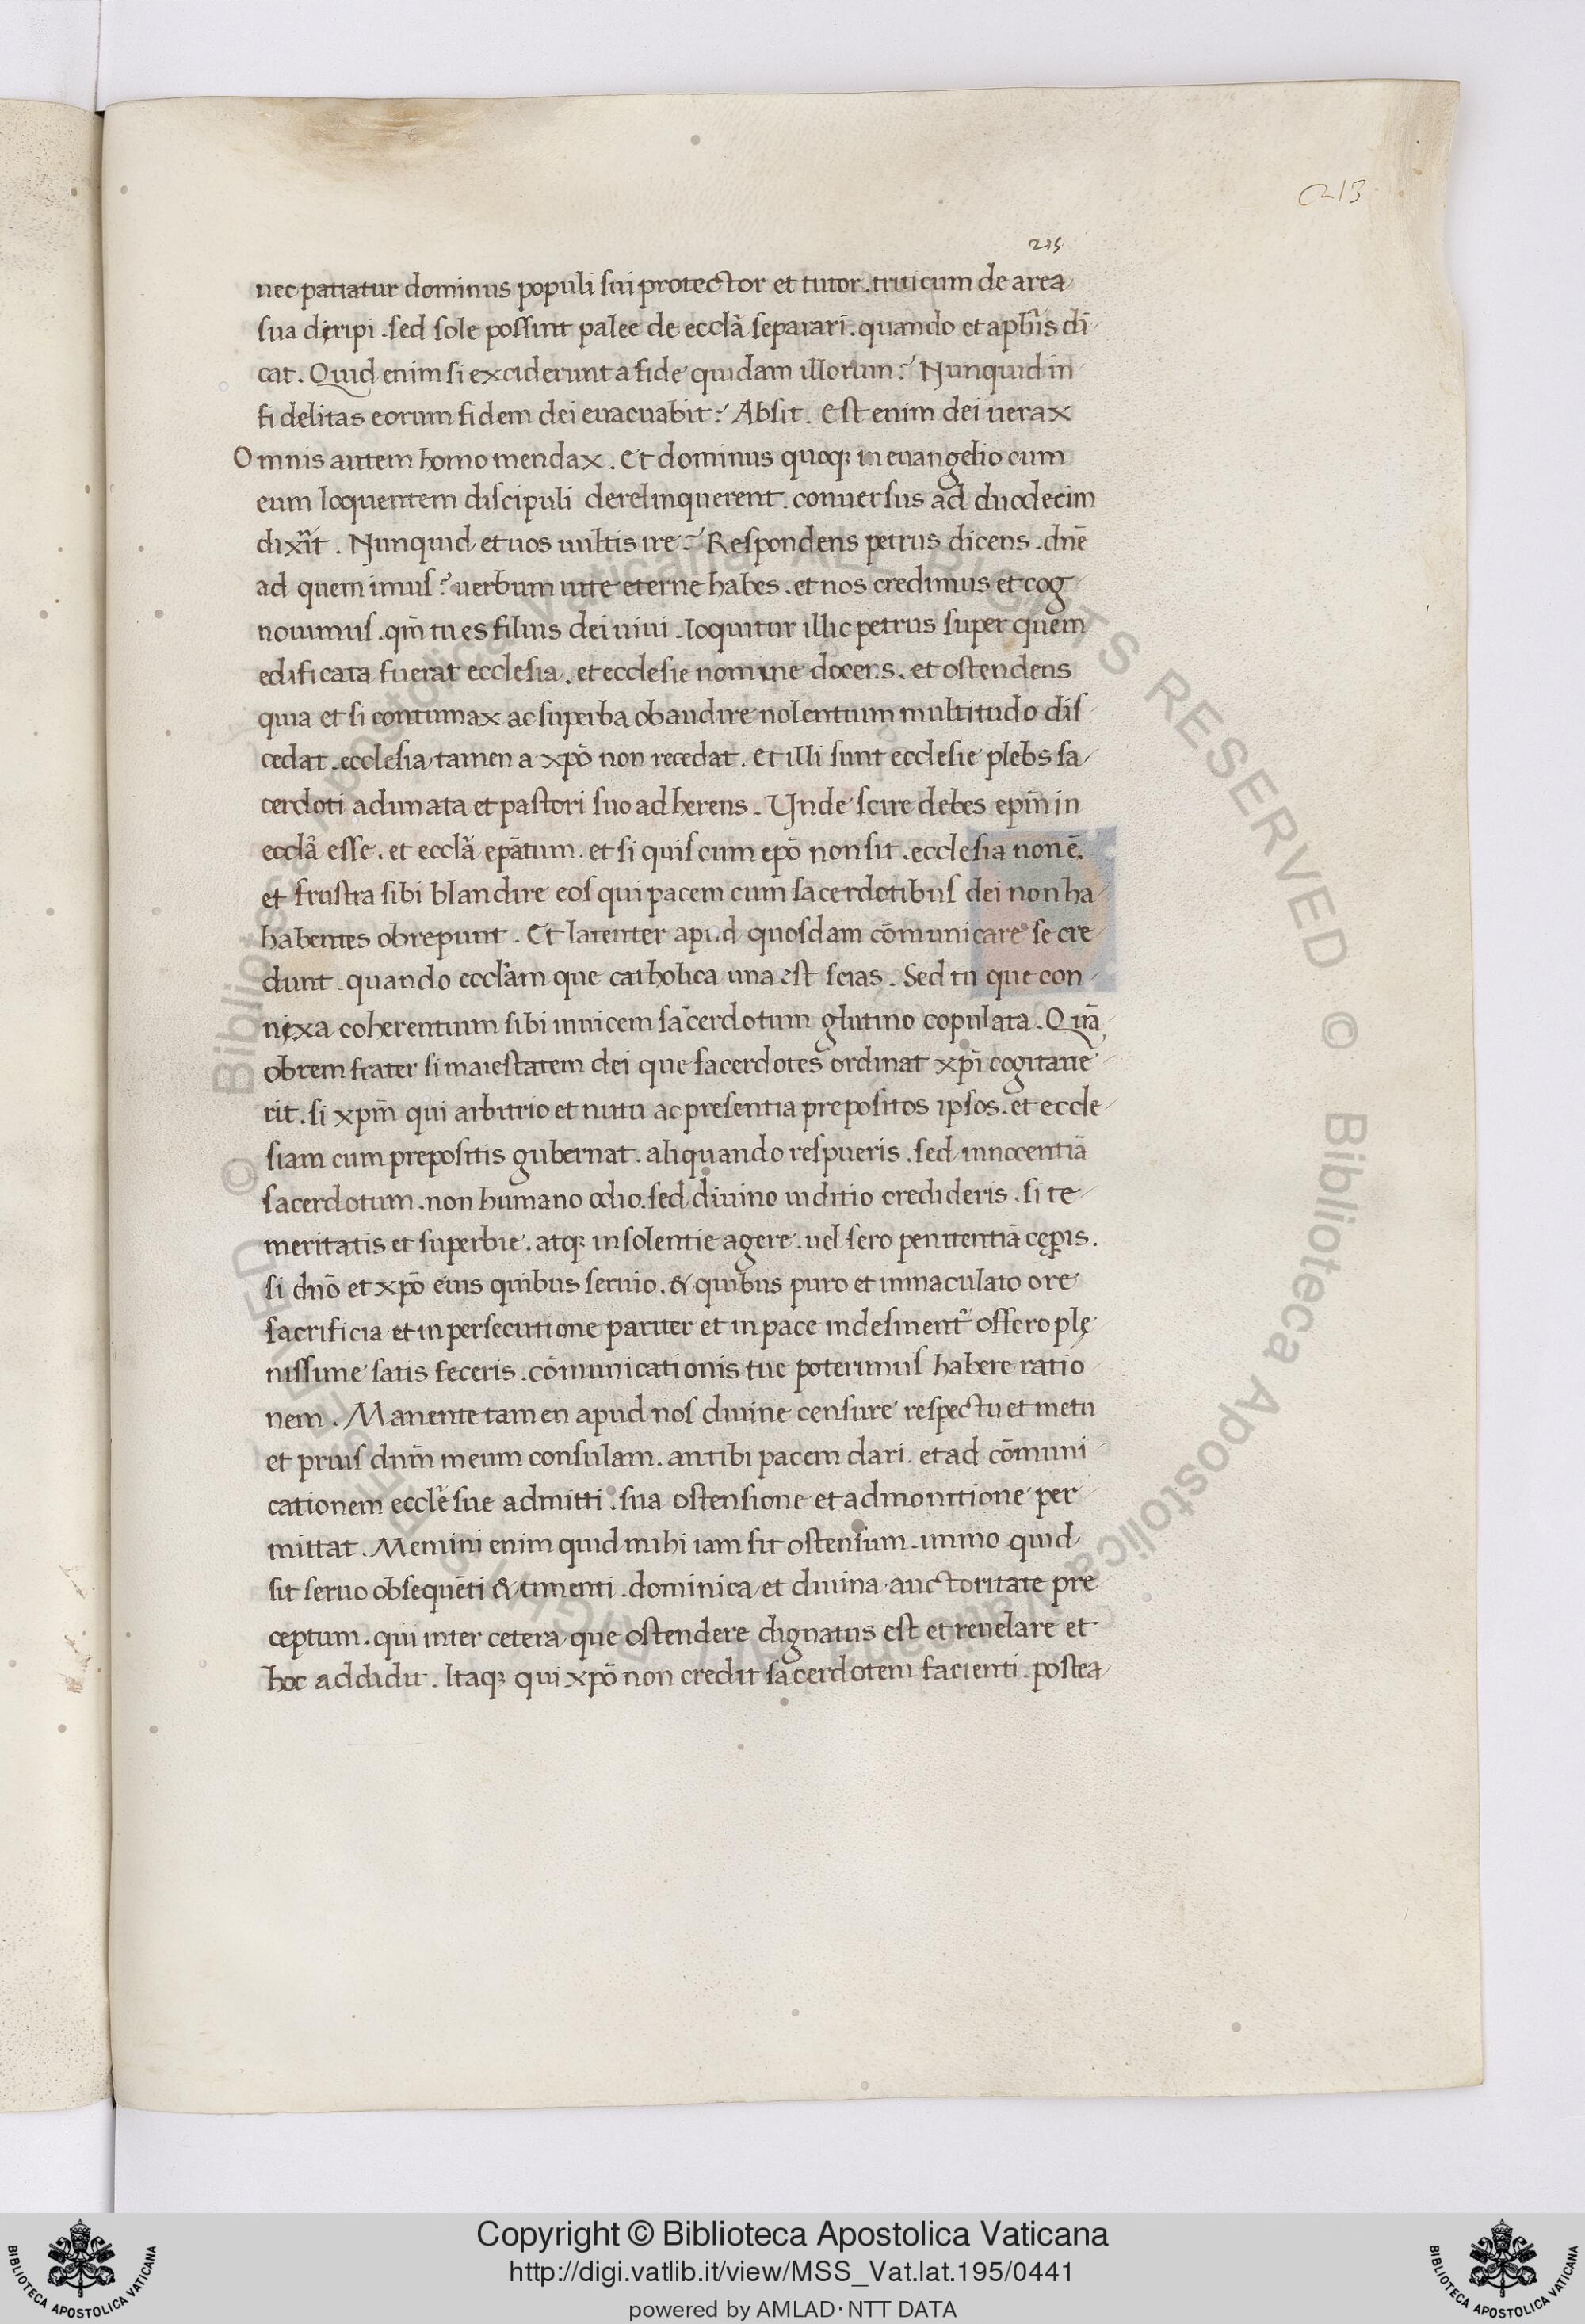 213
215
nec patiatur dominus populi sui protector et tutor . triticum de area
sua diripi . sed sole possint palee de ecclā separari . quando et apl̄us di
cat . Quid enim si exciderunt a fide quidam illorum ? Nunquid in
fidelitas eorum fidem dei euacuabit ? Absit . Est enim dei uerax
Omnis autem homo mendax . Et dominus quoq; in euangelio cum
eum loquentem discipuli derelinquerent . conuersus ad duodecim
dixit . Nunquid et uos uultis ire ? Respondens petrus dicens . dnē
ad quem imus ? uerbum uite eterne habes . et nos credimus et cog
nouimus . qm̄ tu es filius dei uiui . loquitur illic petrus super quem
edificata fuerat ecclesia . et ecclesie nomine docens . et ostendens
quia et si contumax ac superba obaudire nolentium multitudo dis
cedat . ecclesia tamen a xpō non recedat . Et illi sunt ecclesie plebs sa
cerdoti adunata et pastori suo adherens . Unde scire debes epm̄ in
ecclā esse . et ecclā epātum . et si quis cum epō non sit . ecclesia non ē .
et frustra sibi blandire eos qui pacem cum sacerdotibus dei non ha
habentes obrepunt . Et latenter apud quosdam cōmunicare se cre
dunt . quando eccl̄am que catholica una est scias . Sed tu que con
nixa coherentium sibi inuicem sacerdotum glutino copulata . Quā
obrem frater si maiestatem dei que sacerdotes ordinat xpī cogitaue
rit . si xpm̄ qui arbitrio et nutu ac presentia prepositos ipsos . et eccle
siam cum prepositis gubernat . aliquando respueris . sed innocentiā
sacerdotum . non humano odio . sed diuino iuditio credideris . si te
meritatis et superbie . atq; insolentie agere . uel sero penitentiā cęperis .
si dnō et xpō eius quibus seruio . & quibus puro et inmaculato ore
sacrificia et in persecutione pariter et in pace indesinent̄ offero plę
nissime satis feceris . cōmunicationis tue poterimus habere ratio
nem . Manente tamen apud nos diuine censure respectu et metu
et prius dnm̄ meum consulam . an tibi pacem dari . et ad cōmuni
cationem eccl̄e sue admitti . sua ostensione et admonitione per
mittat . Memini enim quid mihi iam sit ostensum . immo quid
sit seruo obsequēti & timenti . dominica et diuina auctoritate pre
ceptum . qui inter cetera que ostendere dignatus est et reuelare et
hoc addidit . Itaq; qui xpō non credit sacerdotem facienti . postea
© Biblioteca Apostolica Vaticana ALL RIGHTS RESERVED
© Biblioteca Apostolica Vaticana ALL RIGHTS RESERVED
Copyright © Biblioteca Apostolica Vaticana
http://digi.vatlib.it/view/MSS_Vat.lat.195/0441
powered by AMLAD·NTT DATA
BIBLIOTECA APOSTOLICA VATICANA
BIBLIOTECA APOSTOLICA VATICANA